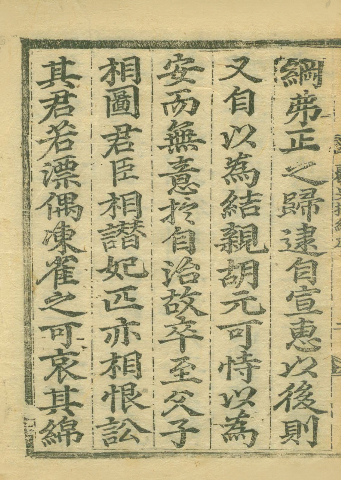 綱弗正之歸逮自宣惠以後則
又自以為結親胡元可恃以為
安而無意於自治故卒至父子
相圖君臣相譖妃匹亦相恨訟
其君若漂偶凍雀之可哀其綿